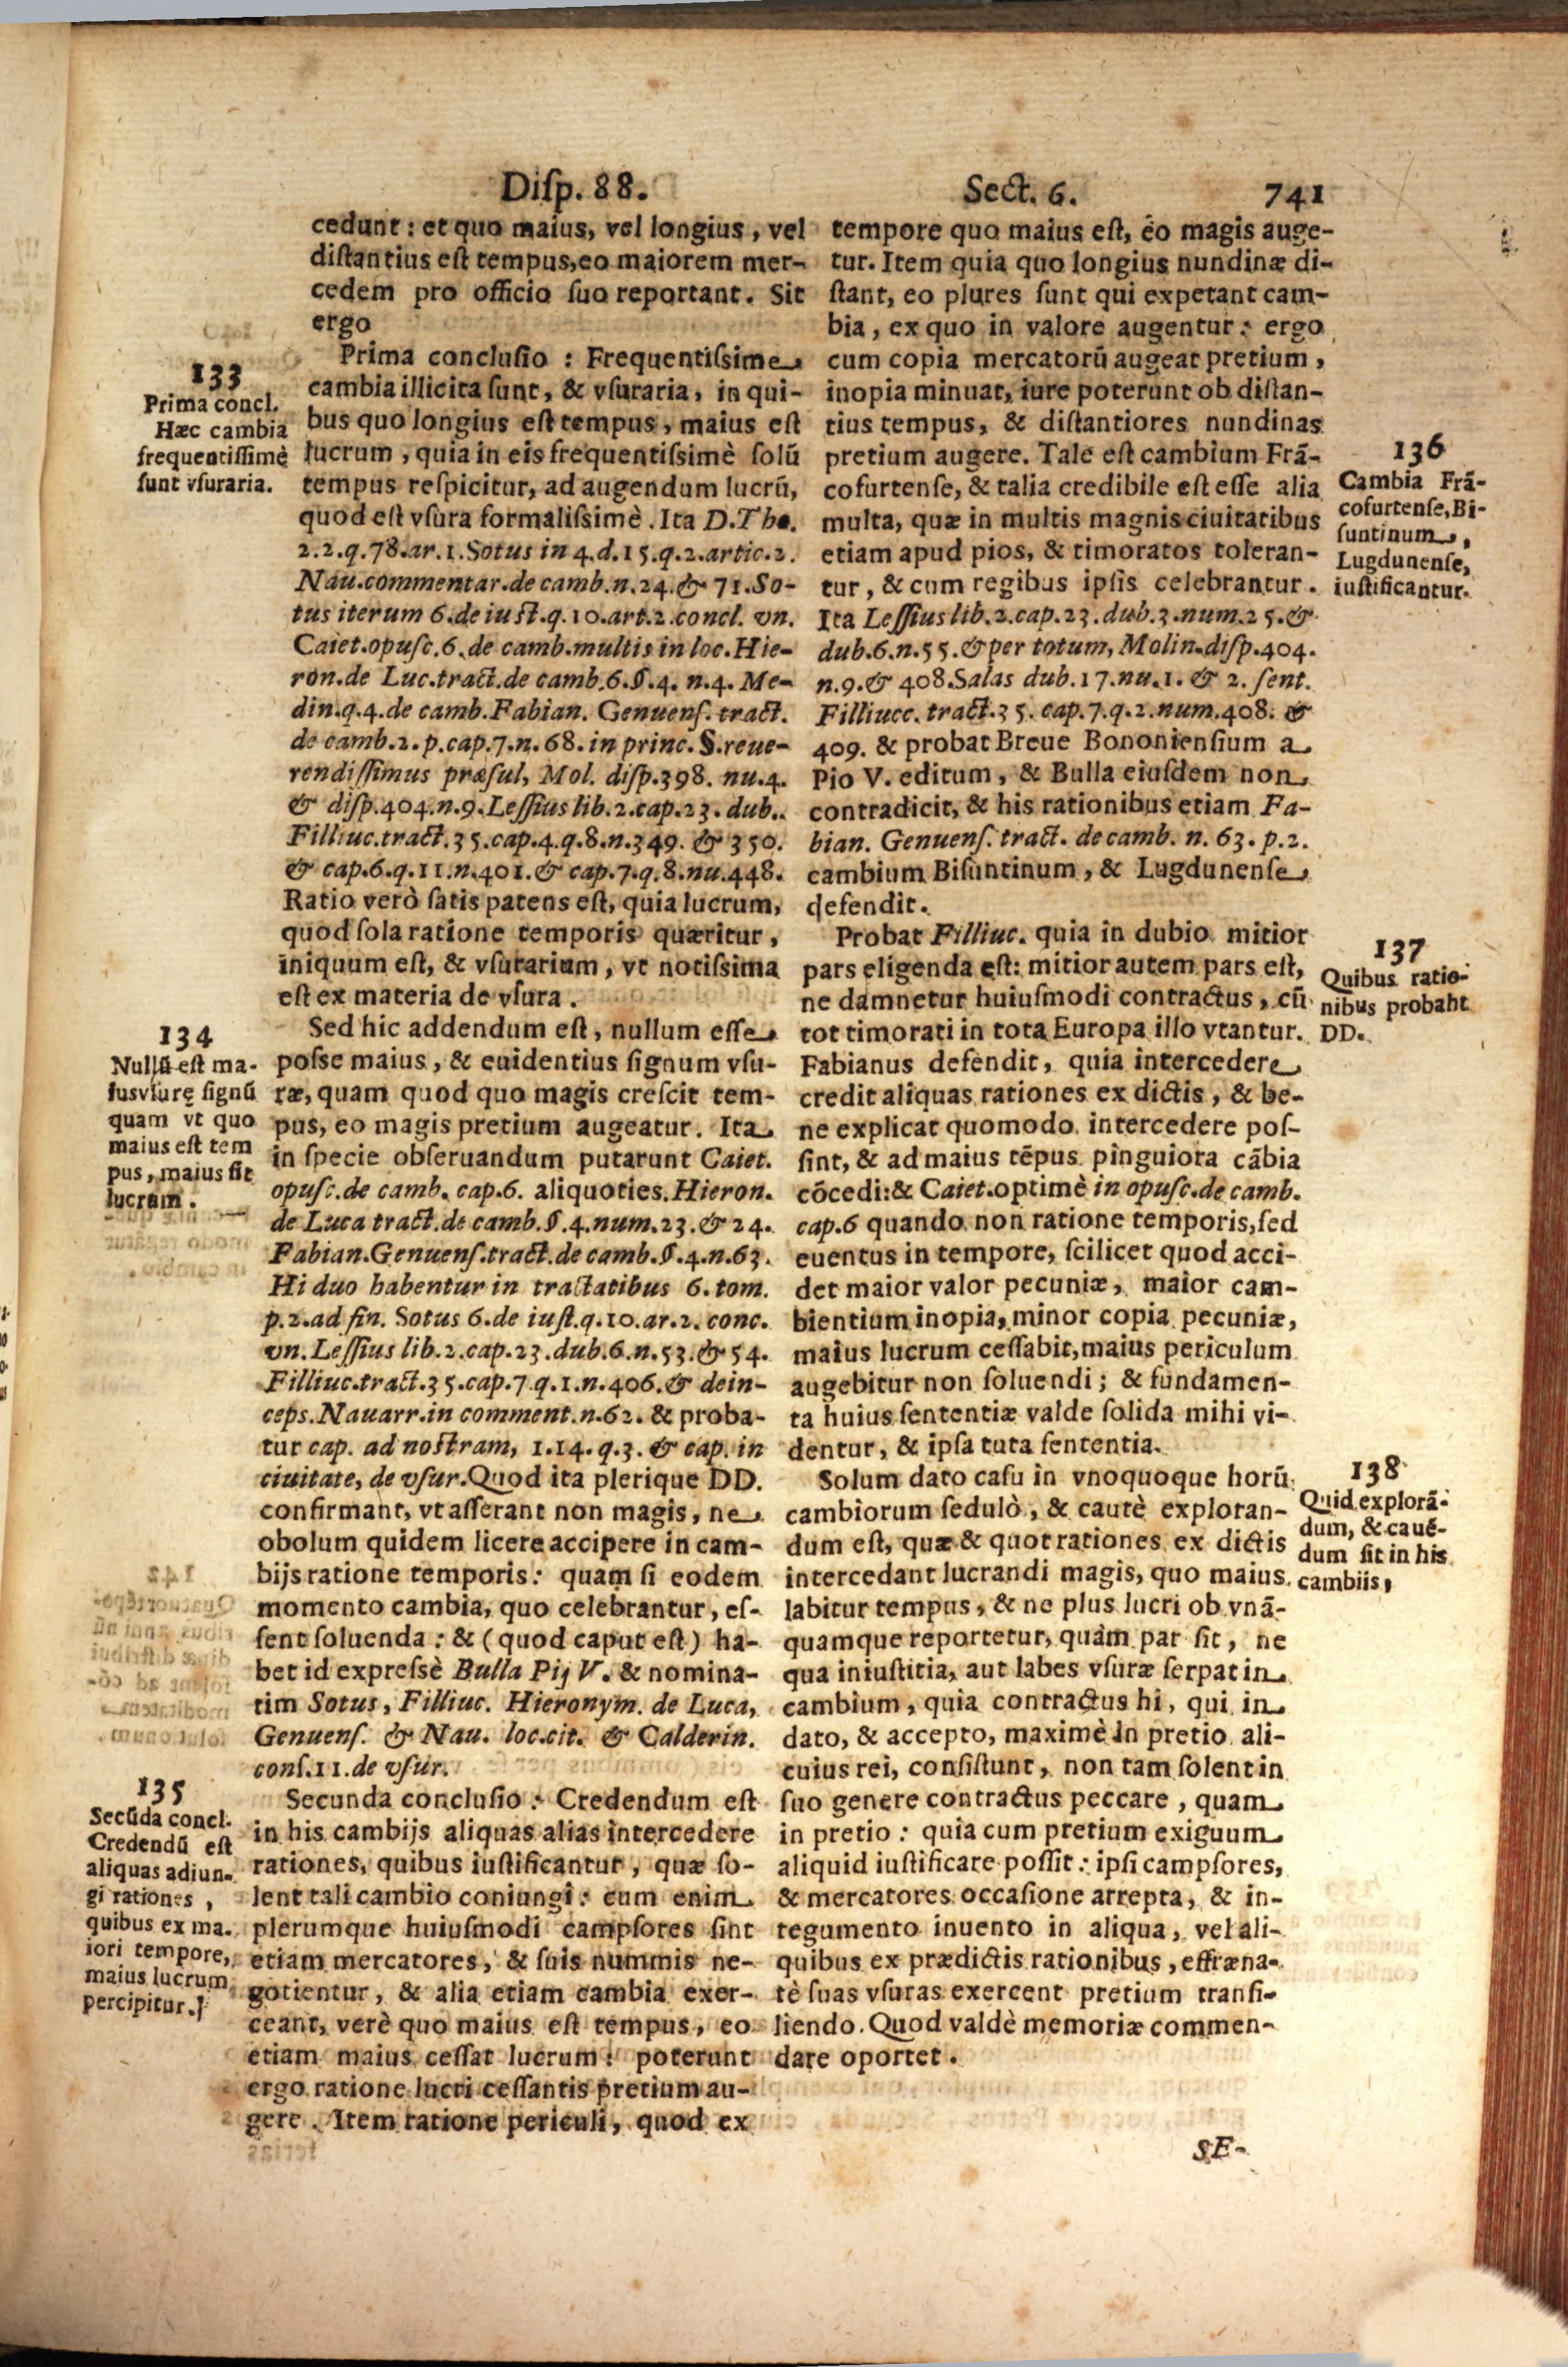 Disp. 88. Sect. 6. 741
cedunt: et quo maius, vel longius, vel
distantius est tempus, eo maiorem mer-
cedem pro officio suo reportant. Sit
ergo
133
Prima concl.
Hæc cambia
frequentissimè
sunt vsuraria.
Prima conclusio: Frequentissime
cambia illicita sunt, & vsuraria, in qui-
bus quo longius est tempus, maius est
lucrum, quia in eis frequentissimè solũ
tempus respicitur, ad augendum lucrũ,
quod est vsura formalissimè. Ita D. Tho.
2.2.q.78.ar.1. Sotus in 4.d.15.q.2.artic.2.
Nau.commentar.de camb.n.24.& 71. So-
tus iterum 6.de iust.q.10.art.2.concl. vn.
Caiet.opusc.6.de camb.multis in loc. Hie-
ron.de Luc.tract.de camb.6.§.4. n.4. Me-
din.q.4.de camb. Fabian. Genuens. tract.
de camb.2.p.cap.7.n.68.in princ.§.reue-
rendissimus præsul, Mol. disp.398. nu.4.
& disp.404.n.9. Lessius lib.2.cap.23. dub..
Filliuc.tract.35.cap.4.q.8.n.349. & 350.
& cap.6.q.11.n.401.& cap.7.q.8.nu.448.
Ratio verò satis patens est, quia lucrum,
quod sola ratione temporis quæritur,
iniquum est, & vsurarium, vt notissima
est ex materia de vsura.
134
Nullũ est ma-
iusvsurę signũ
quam vt quo
maius est tem
pus, maius sit
lucrum.
Sed hic addendum est, nullum esse
posse maius, & euidentius signum vsu-
ræ, quam quod quo magis crescit tem-
pus, eo magis pretium augeatur. Ita
in specie obseruandum putarunt Caiet.
opusc.de camb. cap.6. aliquoties. Hieron.
de Luca tract.de camb.§.4.num.23.& 24.
Fabian.Genuens.tract.de camb.§.4.n.63.
Hi duo habentur in tractatibus 6. tom.
p.2.ad fin. Sotus 6.de iust.q.10.ar.2. conc.
vn. Lessius lib.2.cap.23.dub.6.n.53.& 54.
Filliuc.tract.35.cap.7.q.1.n.406.& dein-
ceps. Nauarr.in comment.n.62. & proba-
tur cap. ad nostram, 1.14. q.3. & cap. in
ciuitate, de vsur. Quod ita plerique DD.
confirmant, vt asserant non magis, ne
obolum quidem licere accipere in cam-
bijs ratione temporis: quam si eodem
momento cambia, quo celebrantur, es-
sent soluenda: & (quod caput est) ha-
bet id expressè Bulla Pij V. & nomina-
tim Sotus, Filliuc. Hieronym. de Luca,
Genuens. & Nau. loc.cit. & Calderin.
cons.11.de vsur.
135
Secũda concl.
Credendũ est
aliquas adiun-
gi rationes,
quibus ex ma-
iori tempore,
maius lucrum
percipitur.]
Secunda conclusio: Credendum est
in his cambijs aliquas alias intercedere
rationes, quibus iustificantur, quæ so-
lent tali cambio coniungi: cum enim
plerumque huiusmodi campsores sint
etiam mercatores, & suis nummis ne-
gotientur, & alia etiam cambia exer-
ceant, verè quo maius est tempus, eo
etiam maius cessat lucrum: poterunt
ergo ratione lucri cessantis pretium au-
gere. Item ratione periculi, quod ex
tempore quo maius est, eo magis auge-
tur. Item quia quo longius nundinæ di-
stant, eo plures sunt qui expetant cam-
bia, ex quo in valore augentur: ergo
cum copia mercatorũ augeat pretium,
inopia minuat, iure poterunt ob distan-
tius tempus, & distantiores nundinas
pretium augere. Tale est cambium Frã-
cofurtense, & talia credibile est esse alia
multa, quæ in multis magnis ciuitatibus
etiam apud pios, & timoratos toleran-
tur, & cum regibus ipsis celebrantur.
Ita Lessius lib.2.cap.23.dub.3.num.25.&
dub.6.n.55.& per totum, Molin.disp.404.
n.9.& 408. Salas dub.17.nu.1. & 2. sent.
Filliucc. tract.35. cap.7.q.2.num.408. &
409. & probat Breue Bononiensium a
Pio V. editum, & Bulla eiusdem non
contradicit, & his rationibus etiam Fa-
bian. Genuens. tract. de camb. n. 63. p.2.
cambium Bisuntinum, & Lugdunense
defendit.
136
Cambia Frã-
cofurtense, Bi-
suntinum,
Lugdunense,
iustificantur.
Probat Filliuc. quia in dubio mitior
pars eligenda est: mitior autem pars est,
ne damnetur huiusmodi contractus, cũ
tot timorati in tota Europa illo vtantur.
Fabianus defendit, quia intercedere
credit aliquas rationes ex dictis, & be-
ne explicat quomodo intercedere pos-
sint, & ad maius tẽpus pinguiora cãbia
cõcedi: & Caiet. optimè in opusc.de camb.
cap.6 quando non ratione temporis, sed
euentus in tempore, scilicet quod acci-
det maior valor pecuniæ, maior cam-
bientium inopia, minor copia pecuniæ,
maius lucrum cessabit, maius periculum
augebitur non soluendi; & fundamen-
ta huius sententiæ valde solida mihi vi-
dentur, & ipsa tuta sententia.
137
Quibus ratio-
nibus probant
DD.
Solum dato casu in vnoquoque horũ
cambiorum sedulò, & cautè exploran-
dum est, quæ & quot rationes ex dictis
intercedant lucrandi magis, quo maius
labitur tempus, & ne plus lucri ob vnã-
quamque reportetur, quàm par sit, ne
qua iniustitia, aut labes vsuræ serpat in
cambium, quia contractus hi, qui in
dato, & accepto, maximè in pretio ali-
cuius rei, consistunt, non tam solent in
suo genere contractus peccare, quam
in pretio: quia cum pretium exiguum
aliquid iustificare possit: ipsi campsores,
& mercatores occasione arrepta, & in-
tegumento inuento in aliqua, vel ali-
quibus ex prædictis rationibus, effræna-
tè suas vsuras exercent pretium transi-
liendo. Quod valdè memoriæ commen-
dare oportet.
138
Quid explorã-
dum, & cauẽ-
dum sit in his
cambiis,
SE-